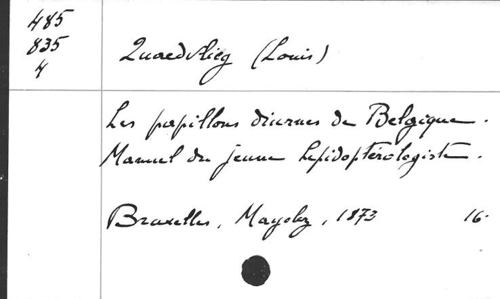 485
835
4
Quaedvlieg (Louis)
Les papillons diurnes de Belgique.
Manuel du jeune lépidoptérologiste.
Bruxelles, Mayolez, 1873 16.